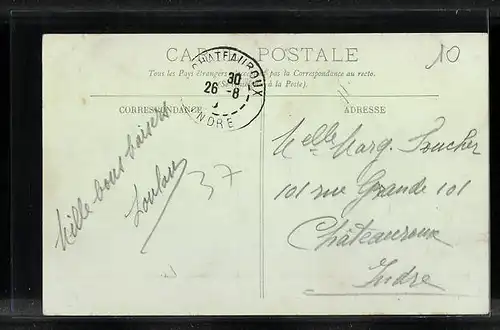 CARTE POSTALE
Tous les Pays étrangers n'acceptent pas la Correspondance au recto.
à la Poste).
CHATEAUROUX
30
26 -8
INDRE
10
CORRESPONDANCE
ADRESSE
Mille bons baisers
Loulou
37
Melle Marg. Foucher
101 rue Grande 101
Châteauroux
Indre